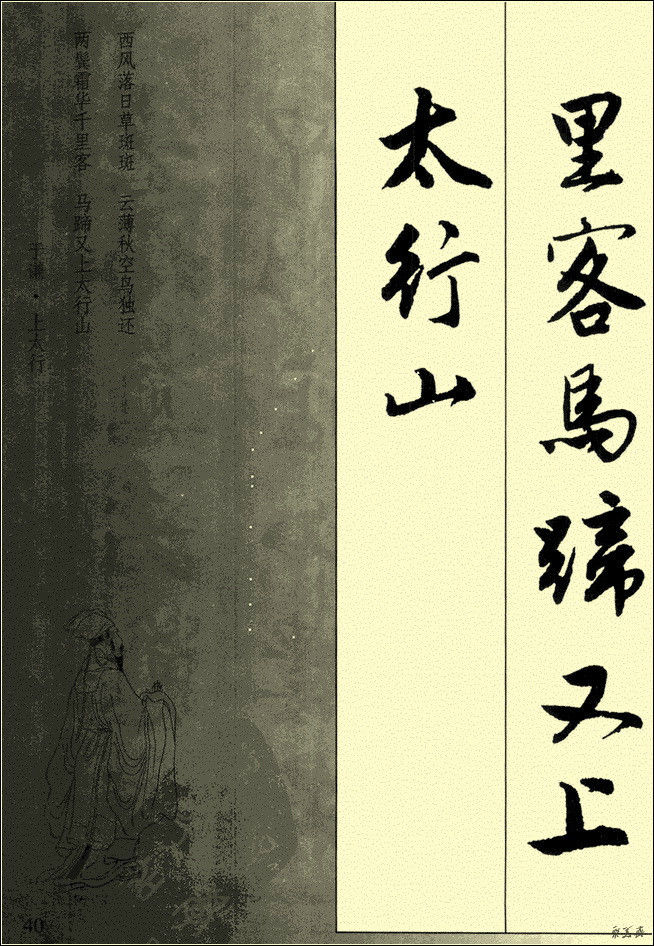 里客馬蹄又上
太行山
西风落日草斑斑 云薄秋空鸟独还
两鬓霜华千里客 马蹄又上太行山
于谦·上太行
40